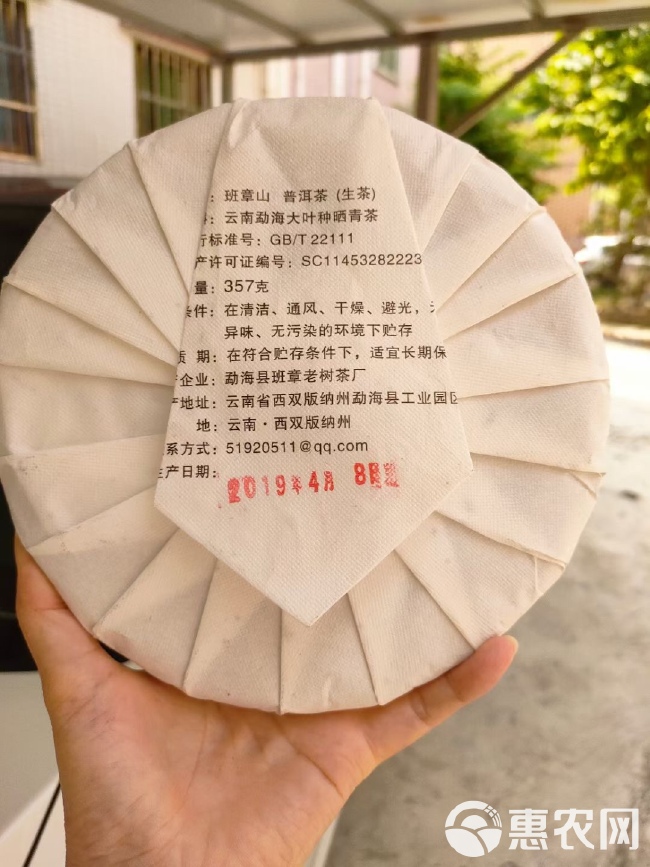 ：班章山 普洱茶 (生茶)
：云南勐海大叶种晒青茶
行标准号：GB/T 22111
产许可证编号：SC11453282223
量：357克
条件：在清洁、通风、干燥、避光，无
异味、无污染的环境下贮存
质 期：在符合贮存条件下，适宜长期保
企业：勐海县班章老树茶厂
产地址：云南省西双版纳州勐海县工业园区
地：云南·西双版纳州
系方式：51920511@qq.com
生产日期：
2019年4月 8日
惠农网